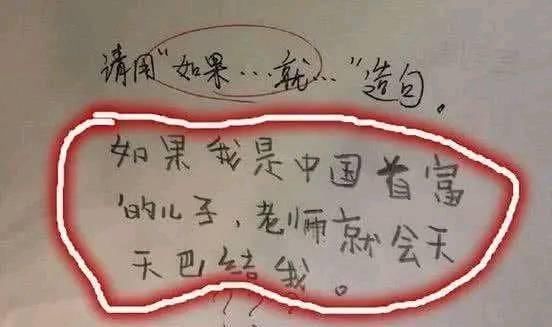 请用"如果…就…"造句。
如果我是中国首富
的儿子,老师就会天
天巴结我。
? ? ?